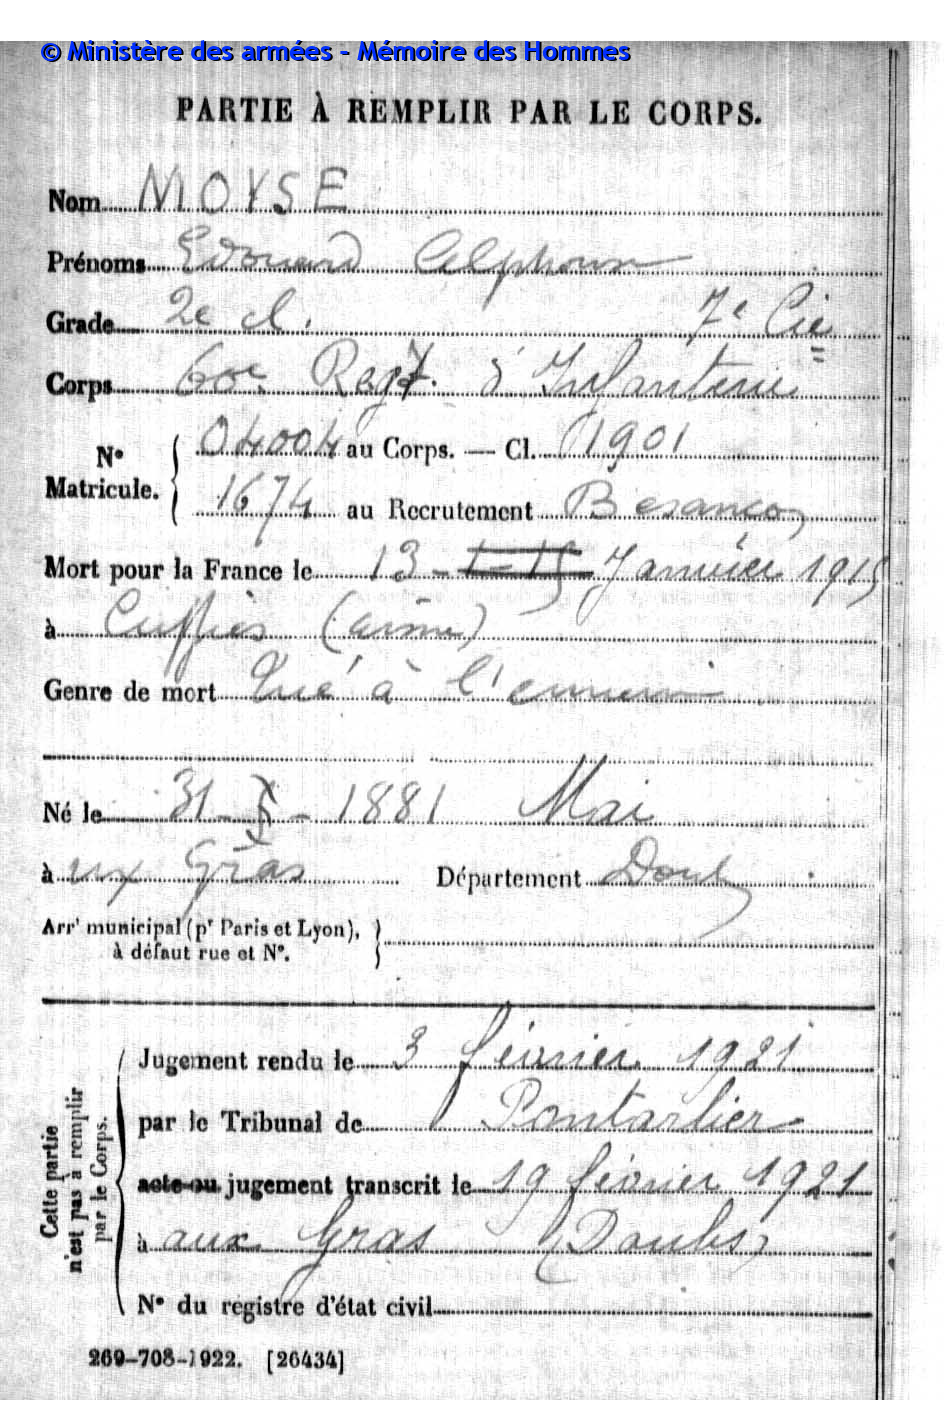 © Ministère des armées - Mémoire des Hommes
PARTIE À REMPLIR PAR LE CORPS.
Nom MOYSE
Prénoms Edouard Alphonse
Grade 2e cl. 7e Cie
Corps 60e Regt. d'Infanterie
N° Matricule. 04004 au Corps. — Cl. 1901
1674 au Recrutement Besançon
Mort pour la France le 13 - Janvier 1915
à Cuffies (aisne)
Genre de mort Tué à l'ennemi
Né le 31 - 5 - 1881 Mai
à ux Gras Département Doubs
Arrt municipal (pr Paris et Lyon),
à défaut rue et N°.
Cette partie
n'est pas à remplir
par le Corps.
Jugement rendu le 3 février 1921
par le Tribunal de Pontarlier
acte ou jugement transcrit le 19 février 1921
à aux Gras (Doubs)
N° du registre d'état civil
269-708-1922. [26434]